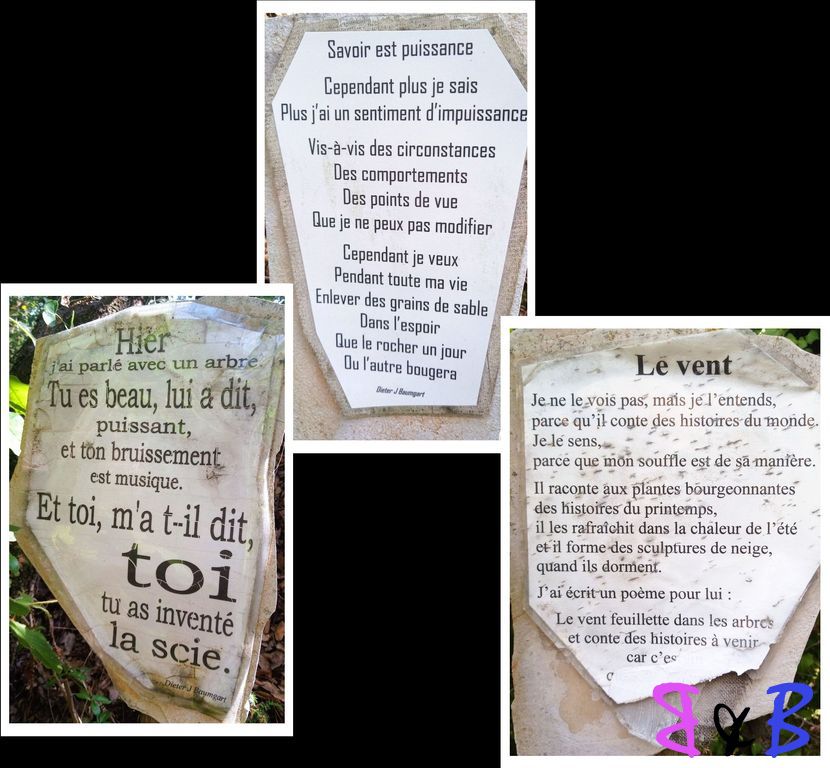 Savoir est puissance
Cependant plus je sais
Plus j'ai un sentiment d'impuissance
Vis-à-vis des circonstances
Des comportements
Des points de vue
Que je ne peux pas modifier
Cependant je veux
Pendant toute ma vie
Enlever des grains de sable
Dans l'espoir
Que le rocher un jour
Ou l'autre bougera
Dieter J Baumgart
Hier
j'ai parlé avec un arbre.
Tu es beau, lui a dit,
puissant,
et ton bruissement
est musique.
Et toi, m'a t-il dit,
toi
tu as inventé
la scie.
Dieter J Baumgart
Le vent
Je ne le vois pas, mais je l'entends,
parce qu'il conte des histoires du monde.
Je le sens,
parce que mon souffle est de sa manière.
Il raconte aux plantes bourgeonnantes
des histoires du printemps,
il les rafraîchit dans la chaleur de l'été
et il forme des sculptures de neige,
quand ils dorment.
J'ai écrit un poème pour lui :
Le vent feuillette dans les arbres
et conte des histoires à venir
car c'es
B & B